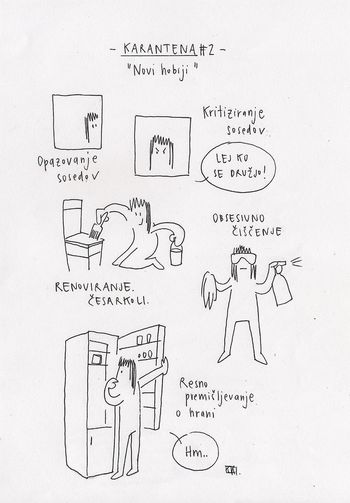 - KARANTENA #2 -
"Novi hobiji"
Opazovanje
sosedov
Kritiziranje
sosedov
LEJ KU
SE DRUŽJO!
RENOVIRANJE
ČESARKOLI.
OBSESIVNO
ČIŠČENJE
Resno
premišljevanje
o hrani
Hm..